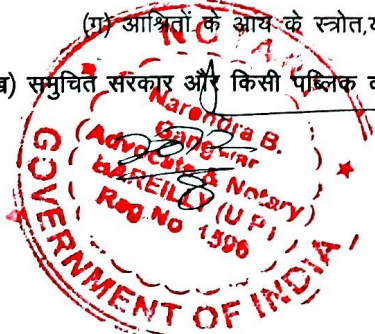 (ग) आश्रितों के आय के स्त्रोत,
ख) समुचित सरकार और किसी पब्लिक
NOTARY
Narendra B.
Gangwar
Advocate & Notary
BAREILLY (U P)
Reg No 1596
GOVERNMENT OF INDIA